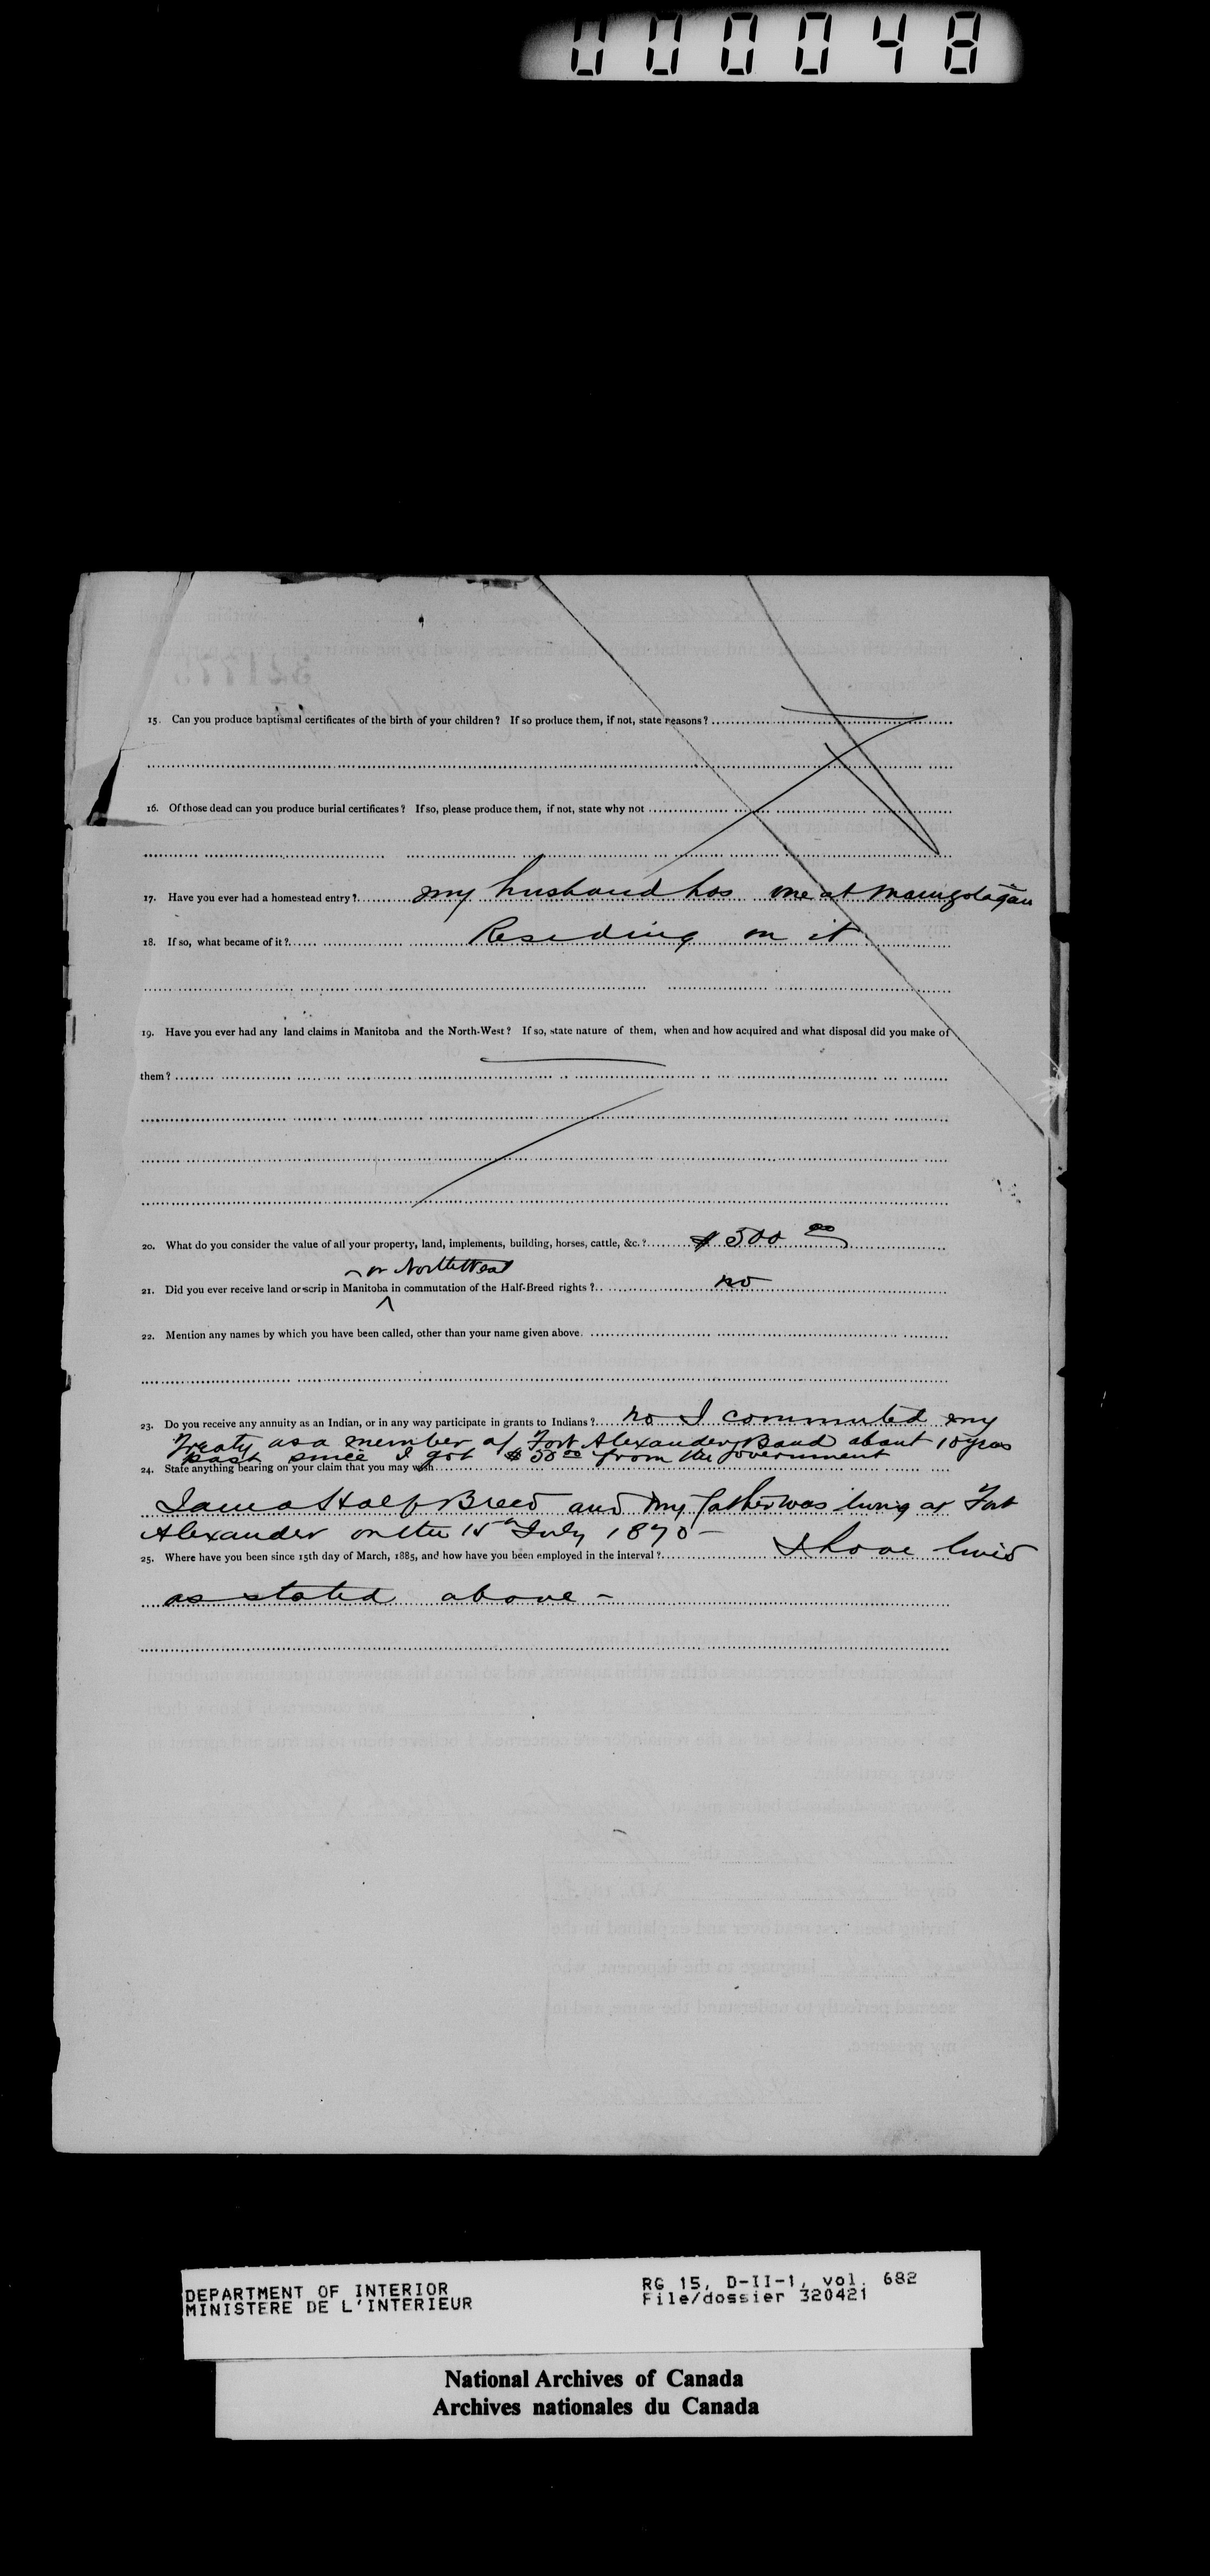 000048
15. Can you produce baptismal certificates of the birth of your children? If so produce them, if not, state reasons?
16. Of those dead can you produce burial certificates? If so, please produce them, if not, state why not
17. Have you ever had a homestead entry? my husband has one at Manigotagan
18. If so, what became of it? Residing on it
19. Have you ever had any land claims in Manitoba and the North-West? If so, state nature of them, when and how acquired and what disposal did you make of
them?
20. What do you consider the value of all your property, land, implements, building, horses, cattle, &c.? $500 00
or North West
21. Did you ever receive land or scrip in Manitoba in commutation of the Half-Breed rights? no
22. Mention any names by which you have been called, other than your name given above.
23. Do you receive any annuity as an Indian, or in any way participate in grants to Indians? no I commuted my
Treaty as a member of Fort Alexander Band about 10 years
past since I got $50 00 from the Government
24. State anything bearing on your claim that you may wish
I am a Half Breed and my father was living at Fort
Alexander on the 15th July 1870 –
25. Where have you been since 15th day of March, 1885, and how have you been employed in the interval? I have lived
as stated above –
DEPARTMENT OF INTERIOR
MINISTERE DE L'INTERIEUR
RG 15, D-II-1, vol. 682
File/dossier 320421
National Archives of Canada
Archives nationales du Canada